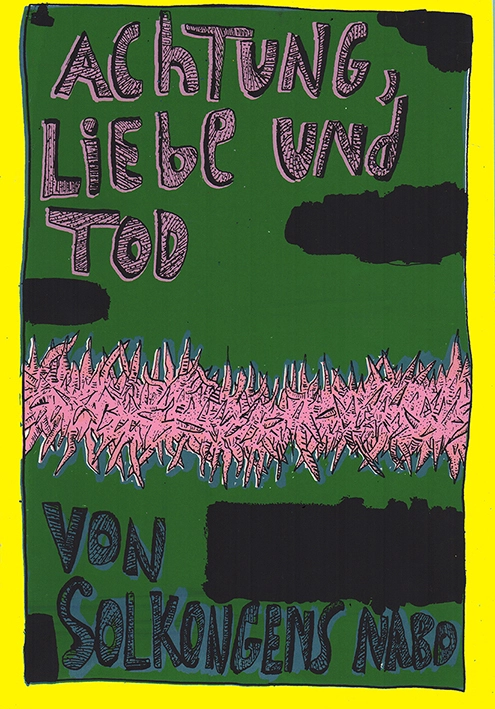 ACHTUNG,
LiEbE UNd
TOD
VON
SOLKONGENS NABO